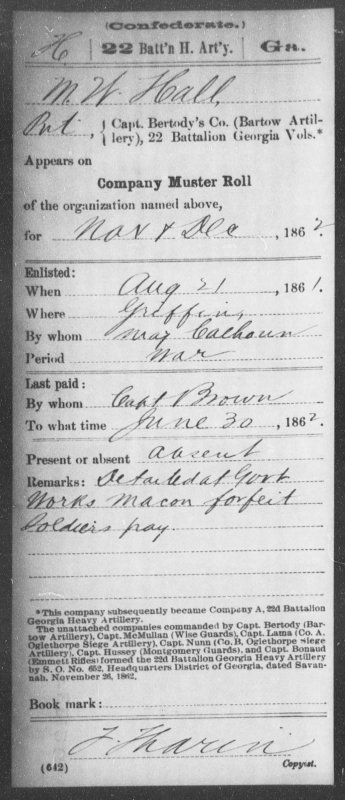 (Confederate.)
H. | 22 Batt'n H. Art'y. | Ga.
M. W. Hall,
Pvt, { Capt. Bertody's Co. (Bartow Artil-
lery), 22 Battalion Georgia Vols.*
Appears on
Company Muster Roll
of the organization named above,
for Nov & Dec, 1862
Enlisted:
When Aug 21, 1861.
Where Griffin,
By whom Maj Calhoun
Period War
Last paid:
By whom Capt Brown
To what time June 30, 1862.
Present or absent absent
Remarks: Detailed at Govt
Works Macon forfeit
Soldiers pay.
*This company subsequently became Company A, 22d Battalion
Georgia Heavy Artillery.
The unattached companies commanded by Capt. Bertody (Bar-
tow Artillery), Capt. McMullan (Wise Guards), Capt. Lama (Co. A,
Oglethorpe Siege Artillery), Capt. Nunn (Co. B, Oglethorpe Siege
Artillery), Capt. Hussey (Montgomery Guards), and Capt. Bonaud
(Emmett Rifles) formed the 22d Battalion Georgia Heavy Artillery
by S. O. No. 652, Headquarters District of Georgia, dated Savan-
nah, November 26, 1862.
Book mark:
(642) Copyist.